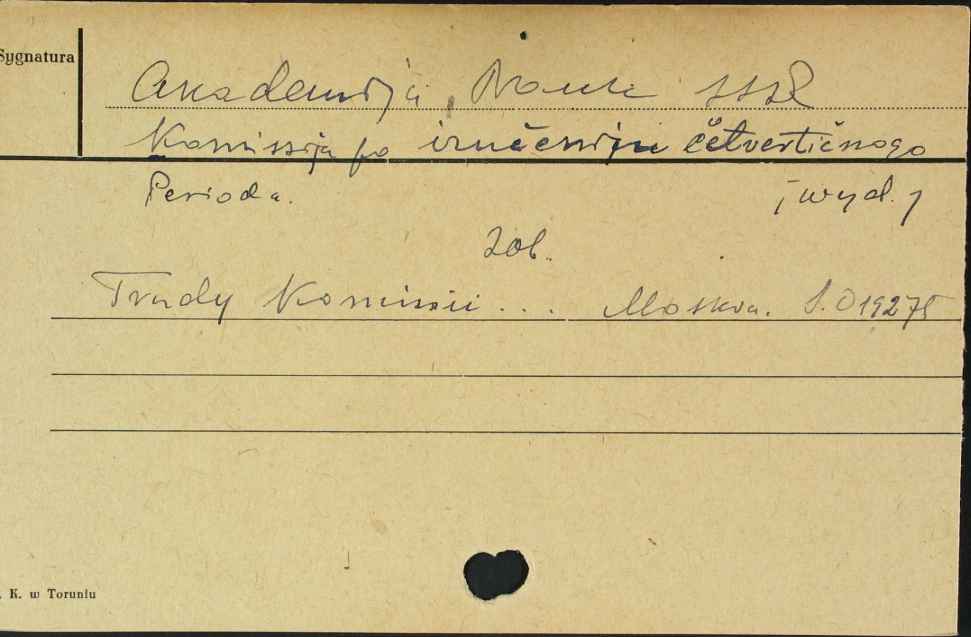 Sygnatura
Akademija Nauk SSSR
Komissija po izučeniju četvertičnogo
Perioda. [wyd.]
zob.
Trudy Komissii ... Moskva. S.019275
. K. w Toruniu